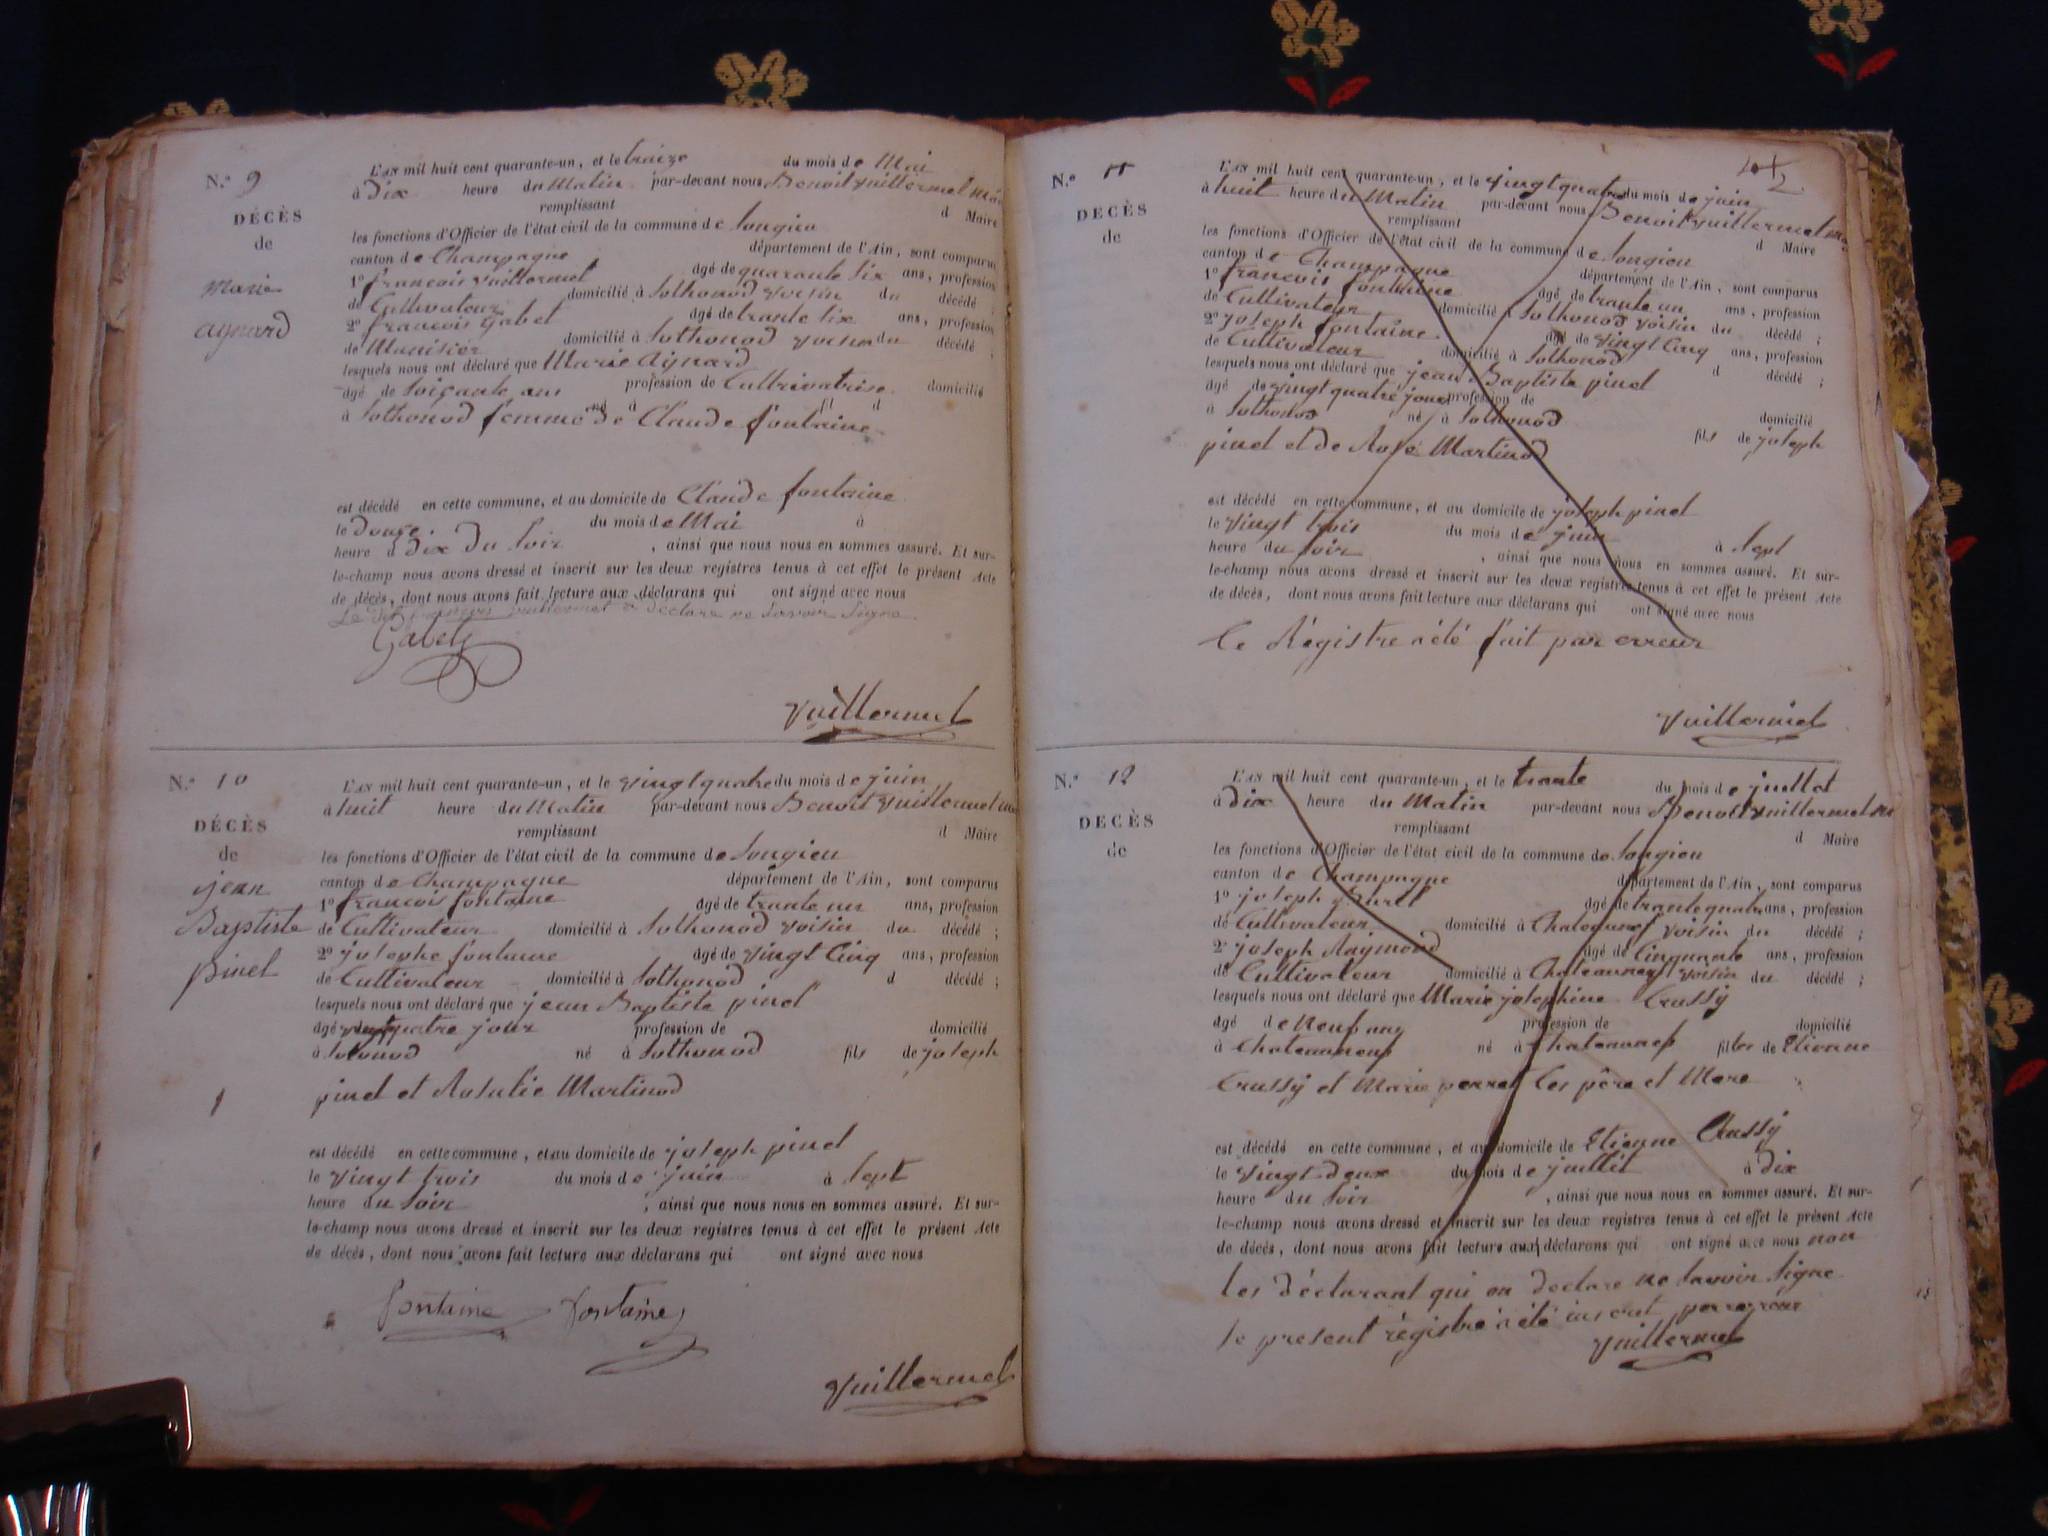 N.° 9
DÉCÈS
de
marie
aynard
L'AN mil huit cent quarante-un, et le traize du mois de Mai
à Dix heure du Matin par-devant nous Benoit Vuillermet
remplissant d Maire
les fonctions d'Officier de l'état civil de la commune de Songieu
canton de Champagne département de l'Ain, sont comparus
1° francois Vuillermet agé de quarante six ans, profession
de Cultivateur domicilié à Sothonod voisin du décédé
2° francois Gabet agé de trante six ans, profession
de Menisier domicilié à Sothonod voisin du décédé ;
lesquels nous ont déclaré que Marie Aynard
agé de Soiçante ans profession de Cultivatrise domicilié
à Sothonod né à fil d
femme de Claude fontaine
est décédé en cette commune, et au domicile de Claude fontaine
le Douze du mois de Mai à
heure à dix Du Soir , ainsi que nous nous en sommes assuré. Et sur-
le-champ nous avons dressé et inscrit sur les deux registres tenus à cet effet le présent Acte
de décès, dont nous avons fait lecture aux déclarans qui ont signé avec nous
Le dit francois Vuillermet a déclaré ne Savoir Signe
Gabet
Vuillermet
N.° 10
DÉCÈS
de
jean
Baptiste
pinel
L'AN mil huit cent quarante-un, et le vingt quatre du mois de juin
à huit heure du Matin par-devant nous Benoit Vuillermet
remplissant d Maire
les fonctions d'Officier de l'état civil de la commune de Songieu
canton de Champagne département de l'Ain, sont comparus
1° francois fontaine agé de trante un ans, profession
de Cultivateur domicilié à Sothonod voisin du décédé ;
2° josephe fontaine agé de vingt Cinq ans, profession
de Cultivateur domicilié à Sothonod d décédé ;
lesquels nous ont déclaré que jean Baptiste pinel
agé quatre jour profession de domicilié
à Sotonod né à Sothonod fils de joseph
pinel et Rosalie Martinod
est décédé en cette commune, et au domicile de joseph pinel
le vingt trois du mois de juin à Sept
heure du Soir , ainsi que nous nous en sommes assuré. Et sur-
le-champ nous avons dressé et inscrit sur les deux registres tenus à cet effet le présent Acte
de décès, dont nous avons fait lecture aux déclarans qui ont signé avec nous
fontaine fontaine
Vuillermet
N.° 11
DÉCÈS
de
L'AN mil huit cent quarante-un, et le vingt quatre du mois de juin
à huit heure du Matin par-devant nous Benoit Vuillermet
remplissant d Maire
les fonctions d'Officier de l'état civil de la commune de Songieu
canton de Champagne département de l'Ain, sont comparus
1° francois fontaine agé de trante un ans, profession
de Cultivateur domicilié à Sothonod voisin du décédé ;
2° joseph fontaine agé de vingt Cinq ans, profession
de Cultivateur domicilié à Sothonod d décédé ;
lesquels nous ont déclaré que jean Baptiste pinel
agé de vingt quatre jours profession de domicilié
à Sothonod né à Sothonod fils de joseph
pinel et de Rose Martinod
est décédé en cette commune, et au domicile de joseph pinel
le vingt trois du mois de juin à Sept
heure du Soir , ainsi que nous nous en sommes assuré. Et sur-
le-champ nous avons dressé et inscrit sur les deux registres tenus à cet effet le présent Acte
de décès, dont nous avons fait lecture aux déclarans qui ont signé avec nous
Ce Régistre a été fait par erreur
Vuillermet
N.° 12
DÉCÈS
de
L'AN mil huit cent quarante-un, et le trante du mois de juillet
à Dix heure du Matin par-devant nous Benoit Vuillermet
remplissant d Maire
les fonctions d'Officier de l'état civil de la commune de Songieu
canton de Champagne département de l'Ain, sont comparus
1° joseph agé de trante quatre ans, profession
de Cultivateur domicilié à voisin du décédé ;
2° joseph Raymond agé de Cinquante ans, profession
de Cultivateur domicilié à Chateauneuf voisin du décédé ;
lesquels nous ont déclaré que Marie josephine Crussy
agé de Neuf ans profession de domicilié
à Chateauneuf né à Chateauneuf filles de Etienne
Crussy et Marie perret Ces père et Mere
est décédé en cette commune, et au domicile de Etienne Crussy
le vingt deux du mois de juillet à dix
heure du Soir , ainsi que nous nous en sommes assuré. Et sur-
le-champ nous avons dressé et inscrit sur les deux registres tenus à cet effet le présent Acte
de décès, dont nous avons fait lecture aux déclarans qui ont signé avec nous non
les déclarant qui on declare ne Savoir Signe
le present régistre a été inscrit par erreur
Vuillermet